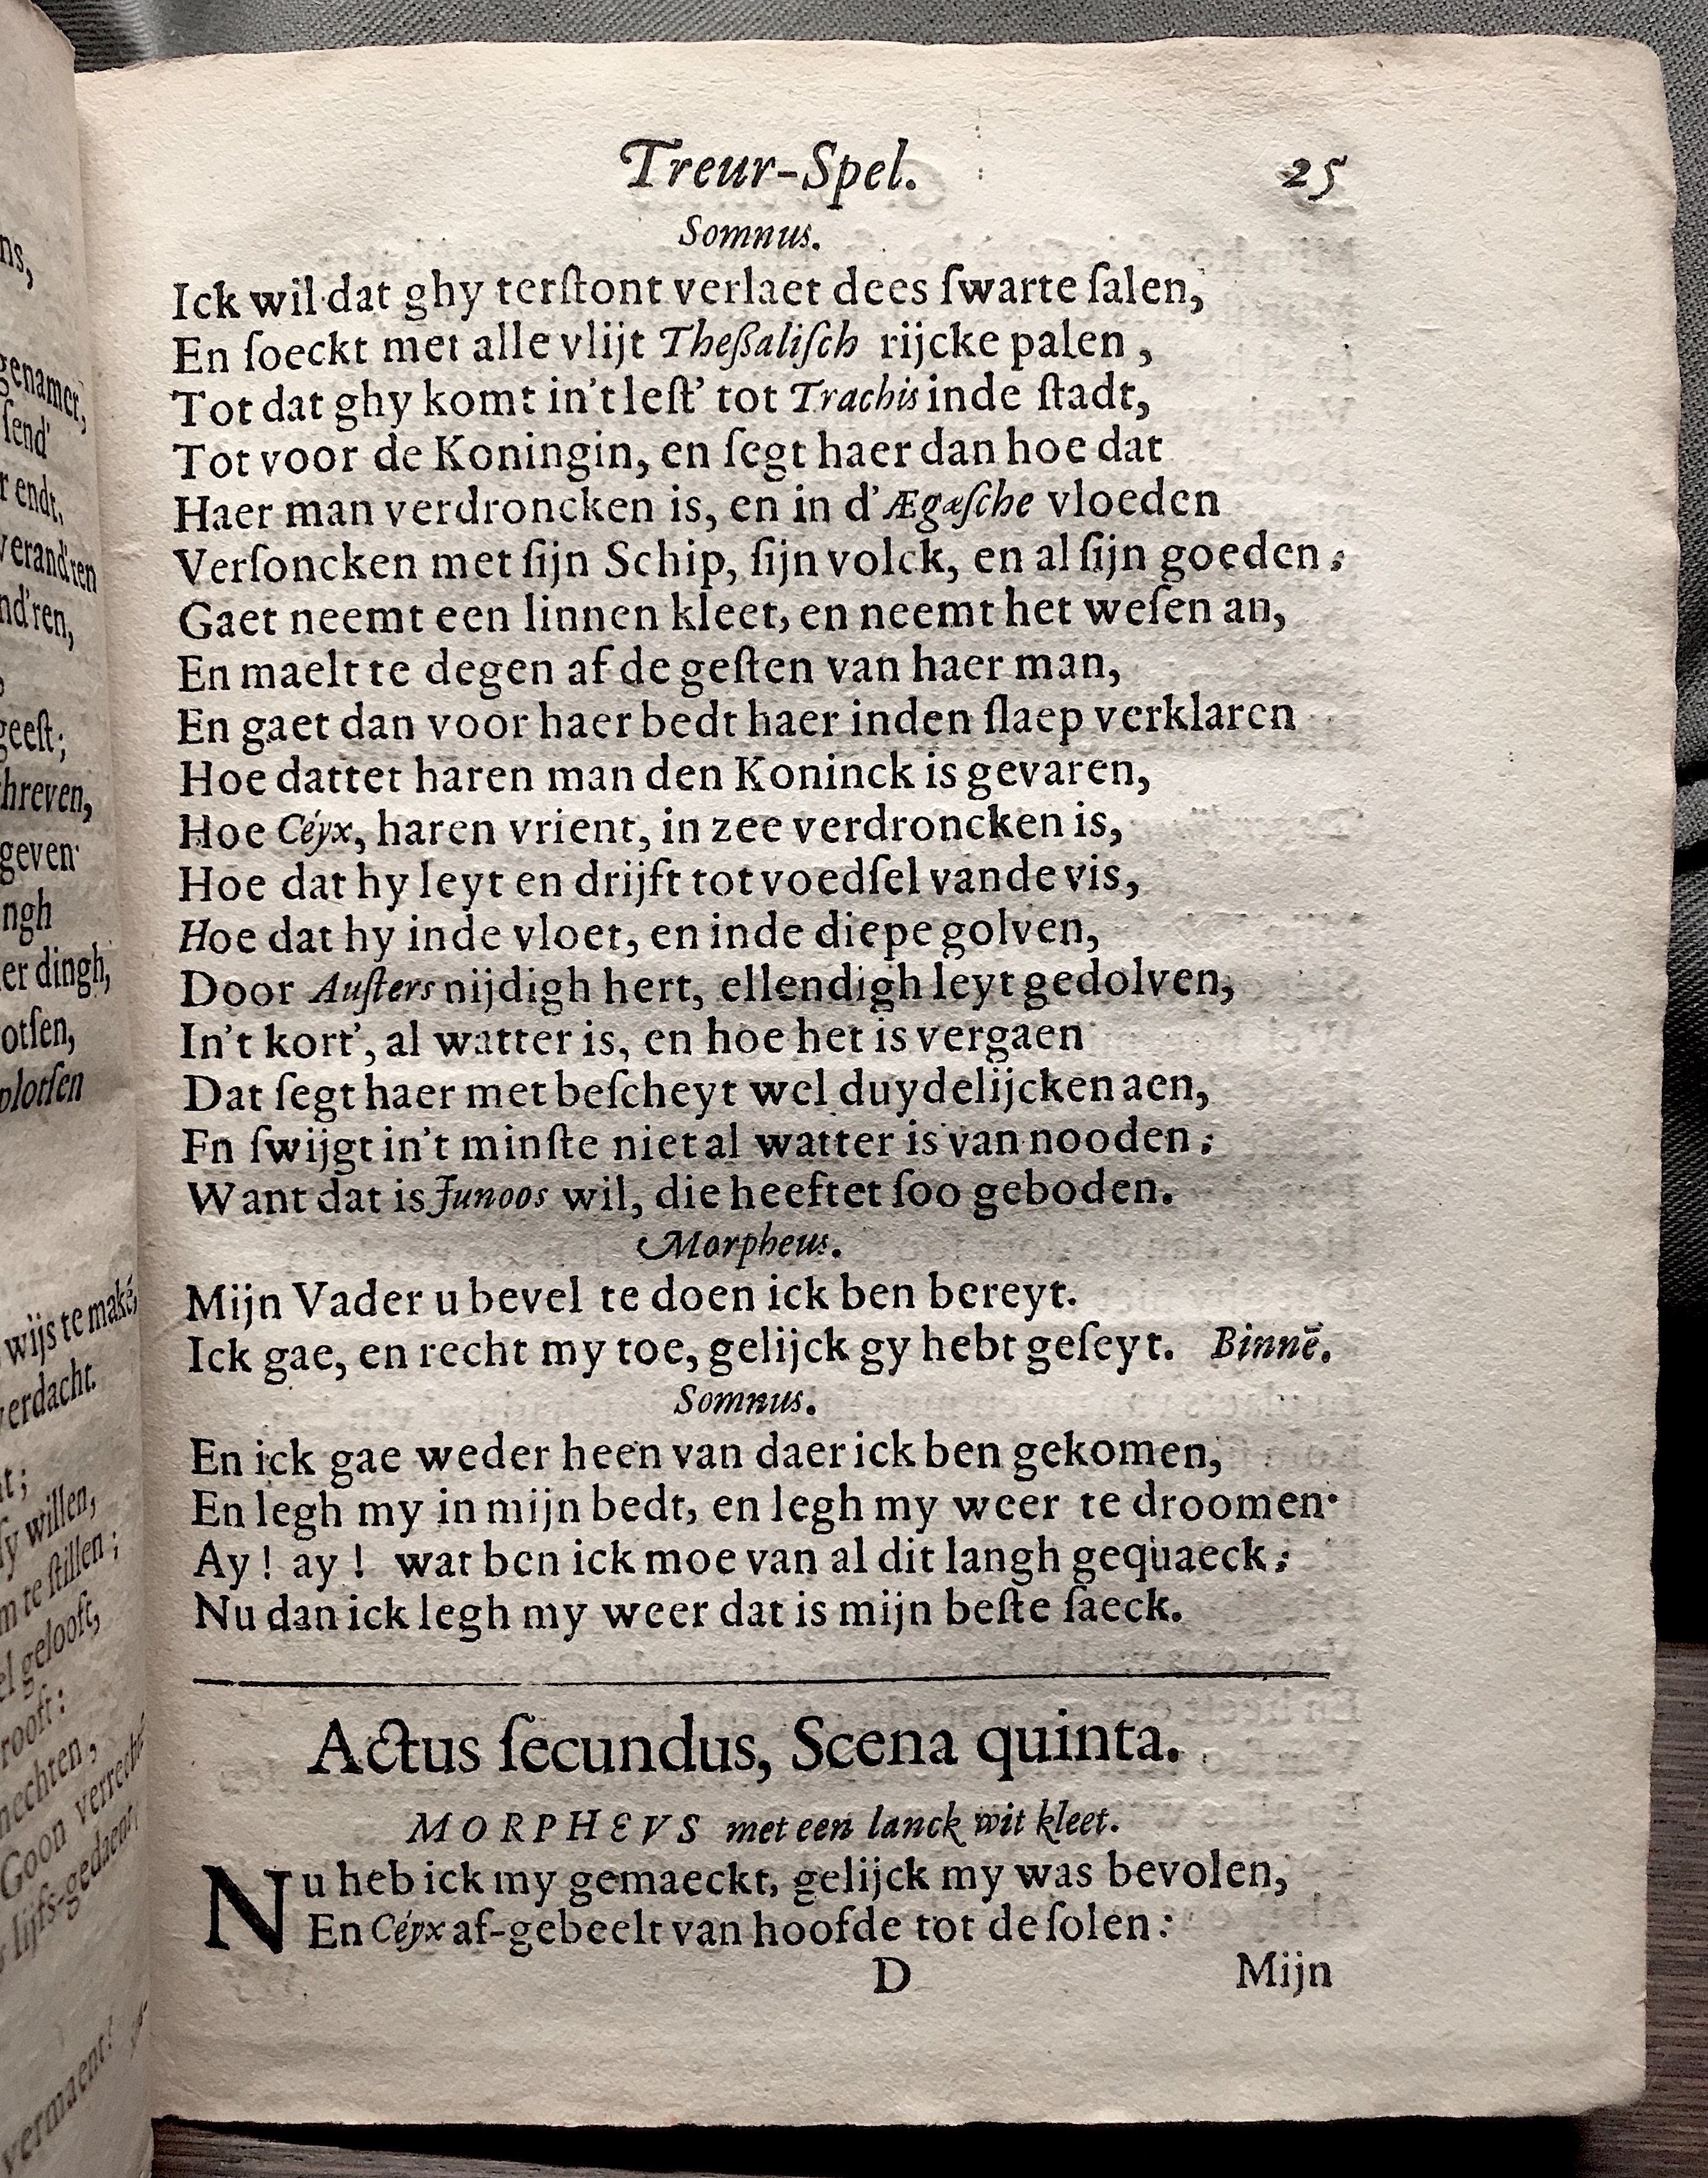 ns,
genamer,
ſend'
r endt,
verand'ren
nd'ren,
geeſt;
hreven,
geven
ngh
er dingh,
otſen,
plotſen
wijs te maké,
verdacht.
t;
ſy willen,
m te ſtillen;
el gelooft,
rooft:
nechten,
Goon verrechten
lijfs-gedaent,
vermaent!
Treur-Spel. 25
Somnus.
Ick wil dat ghy terſtont verlaet dees ſwarte ſalen,
En ſoeckt met alle vlijt Theßaliſch rijcke palen,
Tot dat ghy komt in't leſt' tot Trachis inde ſtadt,
Tot voor de Koningin, en ſegt haer dan hoe dat
Haer man verdroncken is, en in d'Ægæſche vloeden
Verſoncken met ſijn Schip, ſijn volck, en al ſijn goeden;
Gaet neemt een linnen kleet, en neemt het weſen an,
En maelt te degen af de geſten van haer man,
En gaet dan voor haer bedt haer inden ſlaep verklaren
Hoe dattet haren man den Koninck is gevaren,
Hoe Céyx, haren vrient, in zee verdroncken is,
Hoe dat hy leyt en drijft tot voedſel vande vis,
Hoe dat hy inde vloet, en inde diepe golven,
Door Auſters nijdigh hert, ellendigh leyt gedolven,
In't kort', al watter is, en hoe het is vergaen
Dat ſegt haer met beſcheyt wel duydelijcken aen,
Fn ſwijgt in't minſte niet al watter is van nooden;
Want dat is Junoos wil, die heeftet ſoo geboden.
Morpheus.
Mijn Vader u bevel te doen ick ben bereyt.
Ick gae, en recht my toe, gelijck gy hebt geſeyt. Binnē.
Somnus.
En ick gae weder heen van daer ick ben gekomen,
En legh my in mijn bedt, en legh my weer te droomen·
Ay! ay! wat ben ick moe van al dit langh gequaeck;
Nu dan ick legh my weer dat is mijn beſte ſaeck.
Actus ſecundus, Scena quinta.
MORPHEVS met een lanck wit kleet.
Nu heb ick my gemaeckt, gelijck my was bevolen,
En Céyx af-gebeelt van hoofde tot de ſolen:
D Mijn